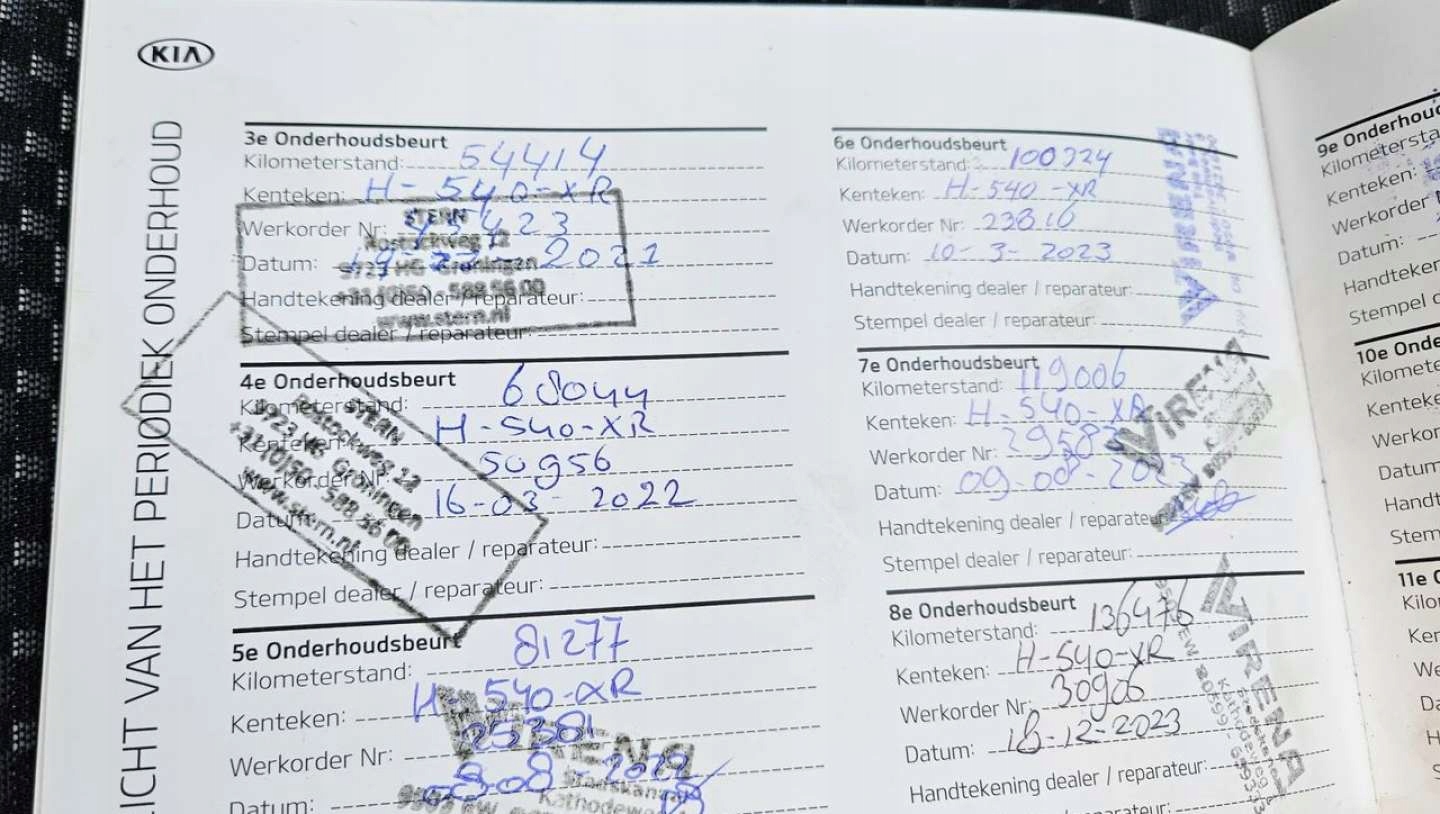 KIA
LICHT VAN HET PERIODIEK ONDERHOUD
3e Onderhoudsbeurt
Kilometerstand: 54414
Kenteken: H-540-XR
Werkorder Nr: 423
Datum: 2021
Handtekening dealer / reparateur:
Stempel dealer / reparateur:
STERN
Rostockweg 12
9723 HG Groningen
588 56 00
www.stern.nl
4e Onderhoudsbeurt
Kilometerstand: 68044
Kenteken: H-540-XR
Werkorder Nr: 50956
Datum: 16-03-2022
Handtekening dealer / reparateur:
Stempel dealer / reparateur:
STERN
Rostockweg 12
9723 HG Groningen
+31(0)50 - 588 56 00
www.stern.nl
5e Onderhoudsbeurt
Kilometerstand: 81277
Kenteken: H-540-XR
Werkorder Nr: 25381
Datum: 08-2022
VIRENA
Stadskanaal
6e Onderhoudsbeurt
Kilometerstand: 100324
Kenteken: H-540-XR
Werkorder Nr: 23816
Datum: 10-3-2023
Handtekening dealer / reparateur:
Stempel dealer / reparateur:
VIRENA
7e Onderhoudsbeurt
Kilometerstand: 119006
Kenteken: H-540-XR
Werkorder Nr: 29583
Datum: 09-08-2023
Handtekening dealer / reparateur:
Stempel dealer / reparateur:
VIRENA
8e Onderhoudsbeurt
Kilometerstand: 136476
Kenteken: H-540-XR
Werkorder Nr: 30906
Datum: 18-12-2023
Handtekening dealer / reparateur:
reparateur:
VIRENA
9e Onderhoud
Kilometersta
Kenteken:
Werkorder
Datum:
Handteken
Stempel d
10e Onde
Kilomete
Kenteke
Werkor
Datum
Handt
Stem
11e O
Kilo
Ker
We
Da
H
S